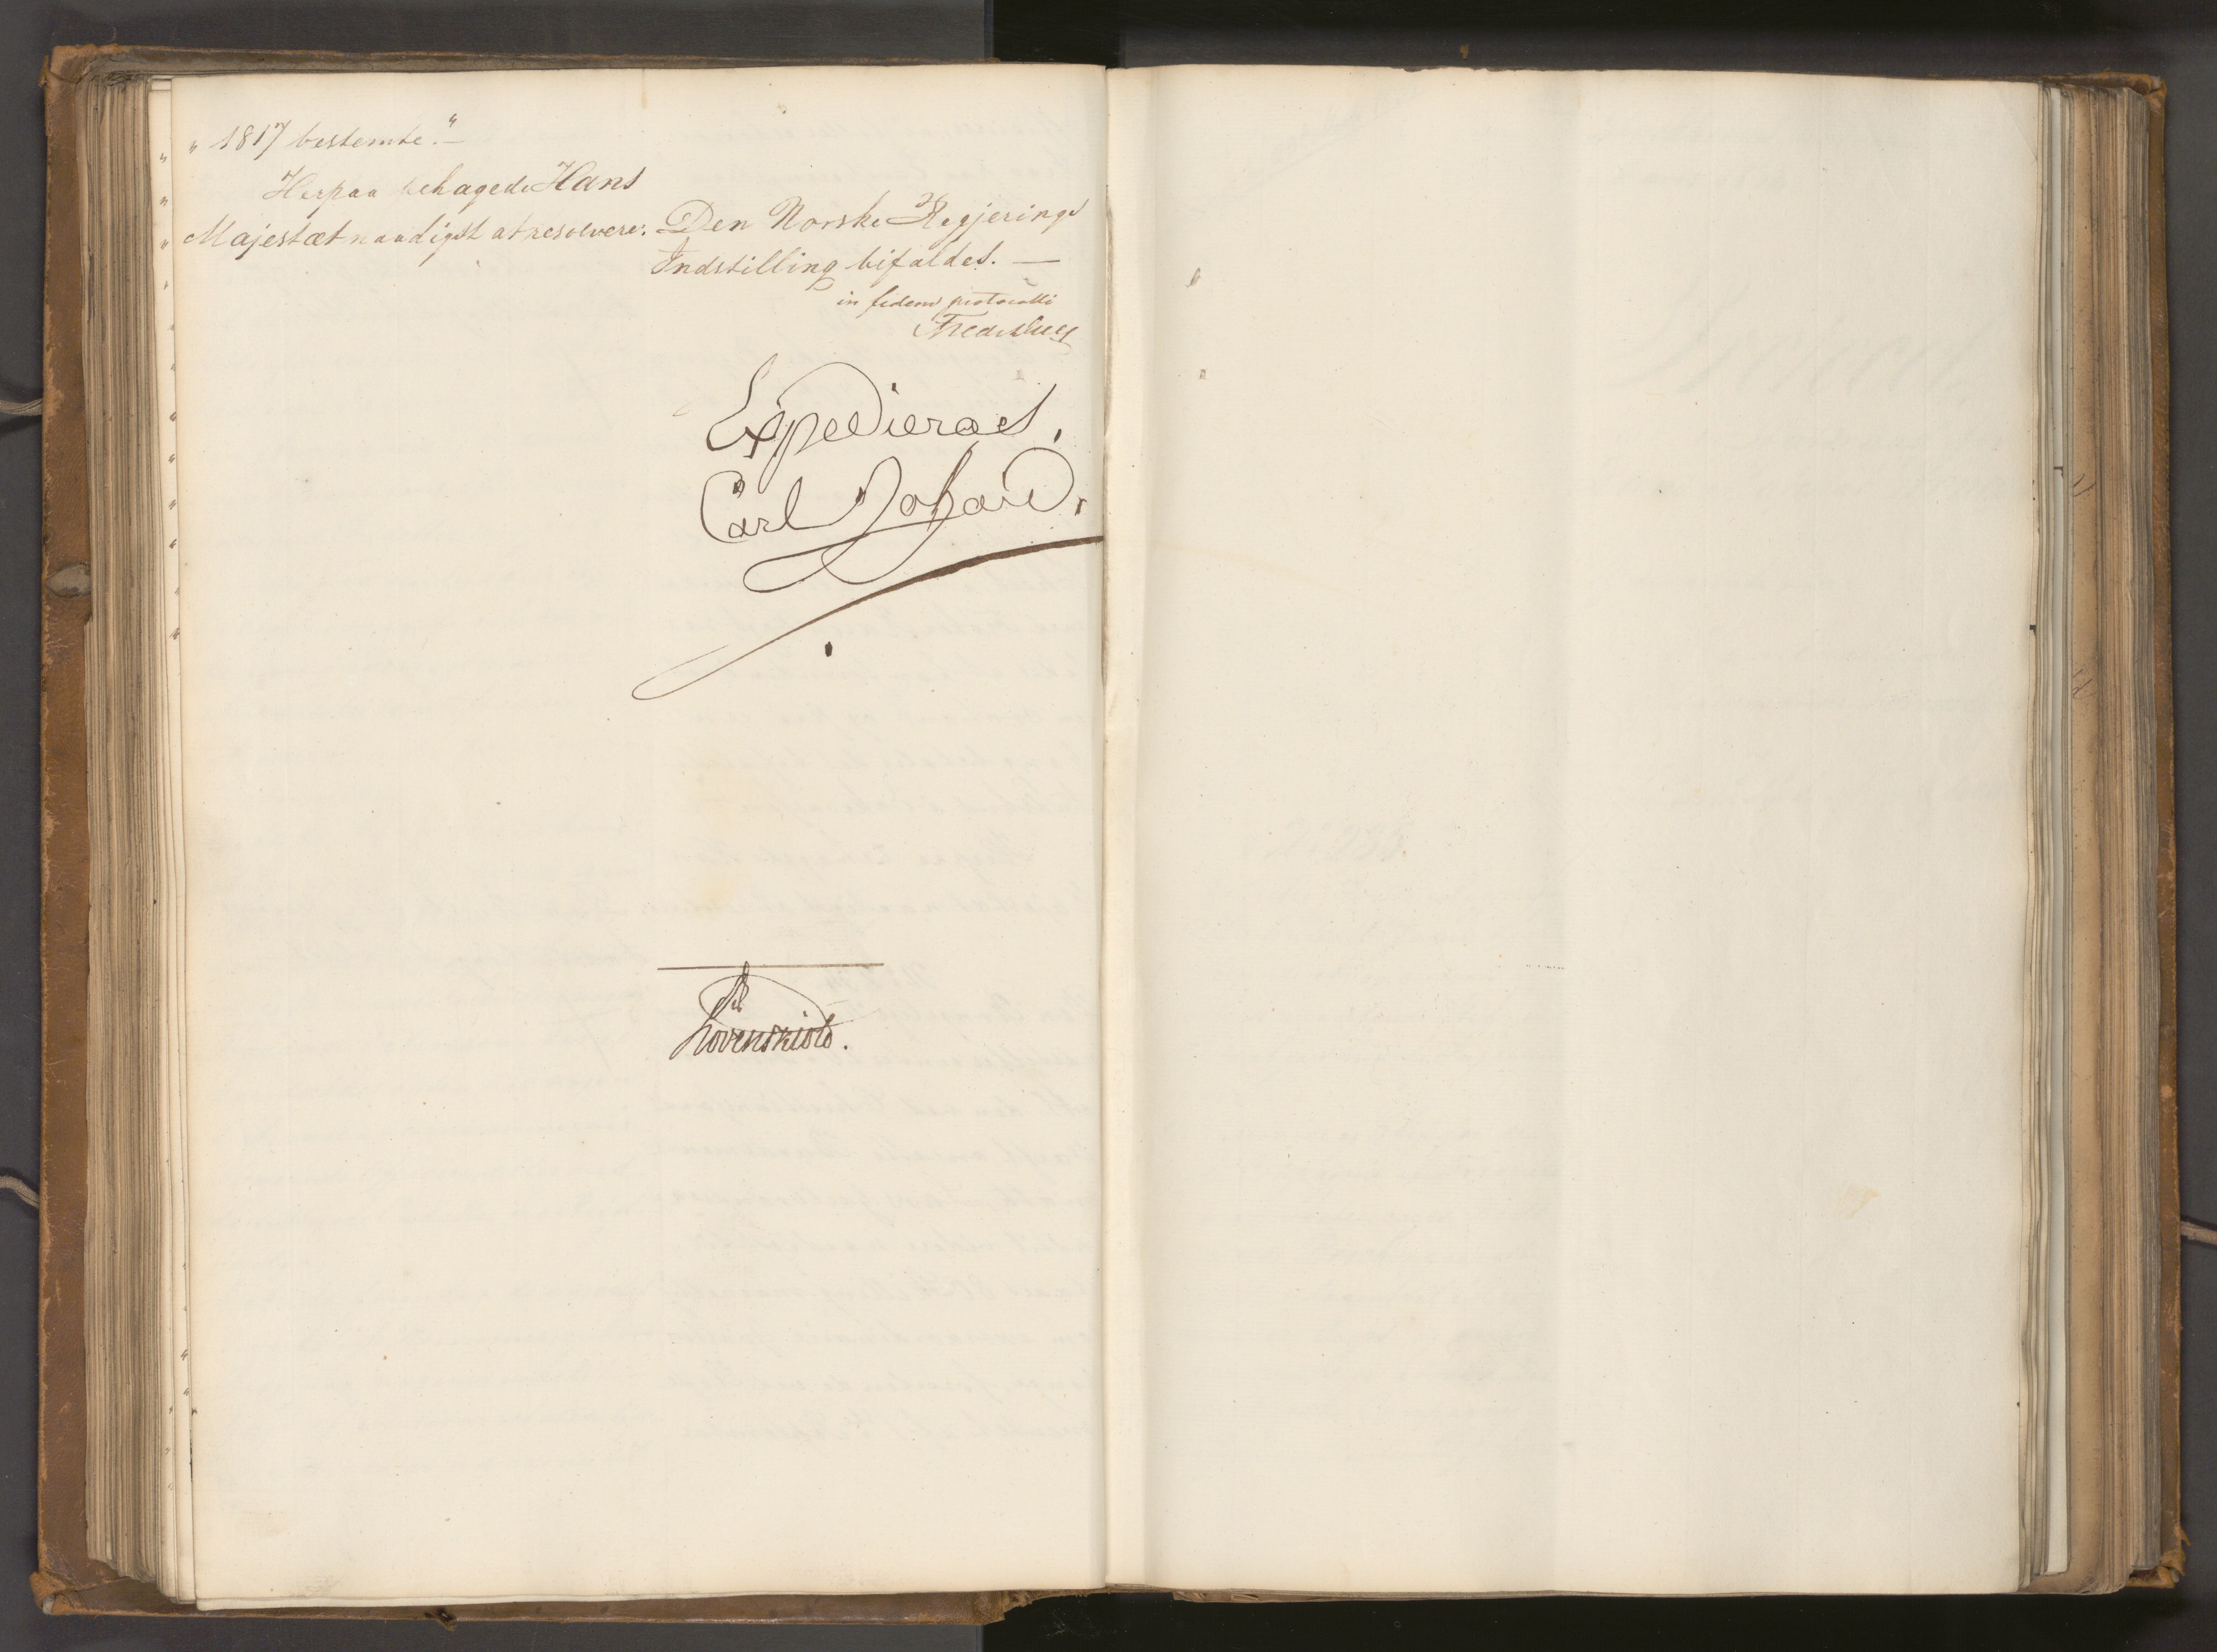 „ 1817 bestemte."—
Herpaa behagede Hans
Majestæt naadigst at resolvere: Den Norske Regjerings
Indstilling bifaldes. —
in fidem protocolli
Expedieraes,
Carl Johan.
Løvenskiold.